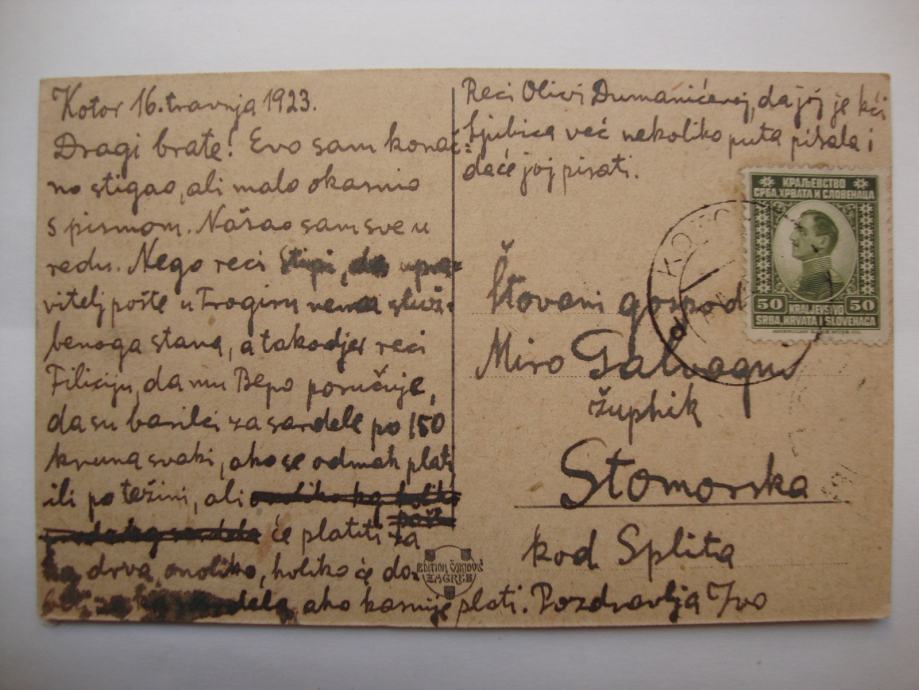 Kotor 16. travnja 1923.
Dragi brate! Evo sam konač-
no stigao, ali malo okasnio
s pismom. Našao sam sve u
redu. Nego reci Stipi, da upra-
vitelj pošte u Trogiru nema služ-
benoga stana, a takodjer reci
Filiciju, da mu Bepo poručuje,
da su barilci za sardele po 150
kruna svaki, ako se odmah plati
ili po težini, ali
će platiti za
kg drva, onoliko, koliko će do-
ako kasnije plati. Pozdravlja Ivo
Reci Olivi Dumanićevoj, da joj je kći
Ljubica već nekoliko puta pisala i
da će joj pisati.
КРАЉЕВСТВО
СРБА, ХРВАТА И СЛОВЕНАЦА
50 50
KRALJEVSTVO
SRBA, HRVATA I SLOVENACA
Štovani gospod
Miro Galvagni
župnik
Stomorska
kod Splita
EDITION ČAKLOVIĆ
ZAGREB